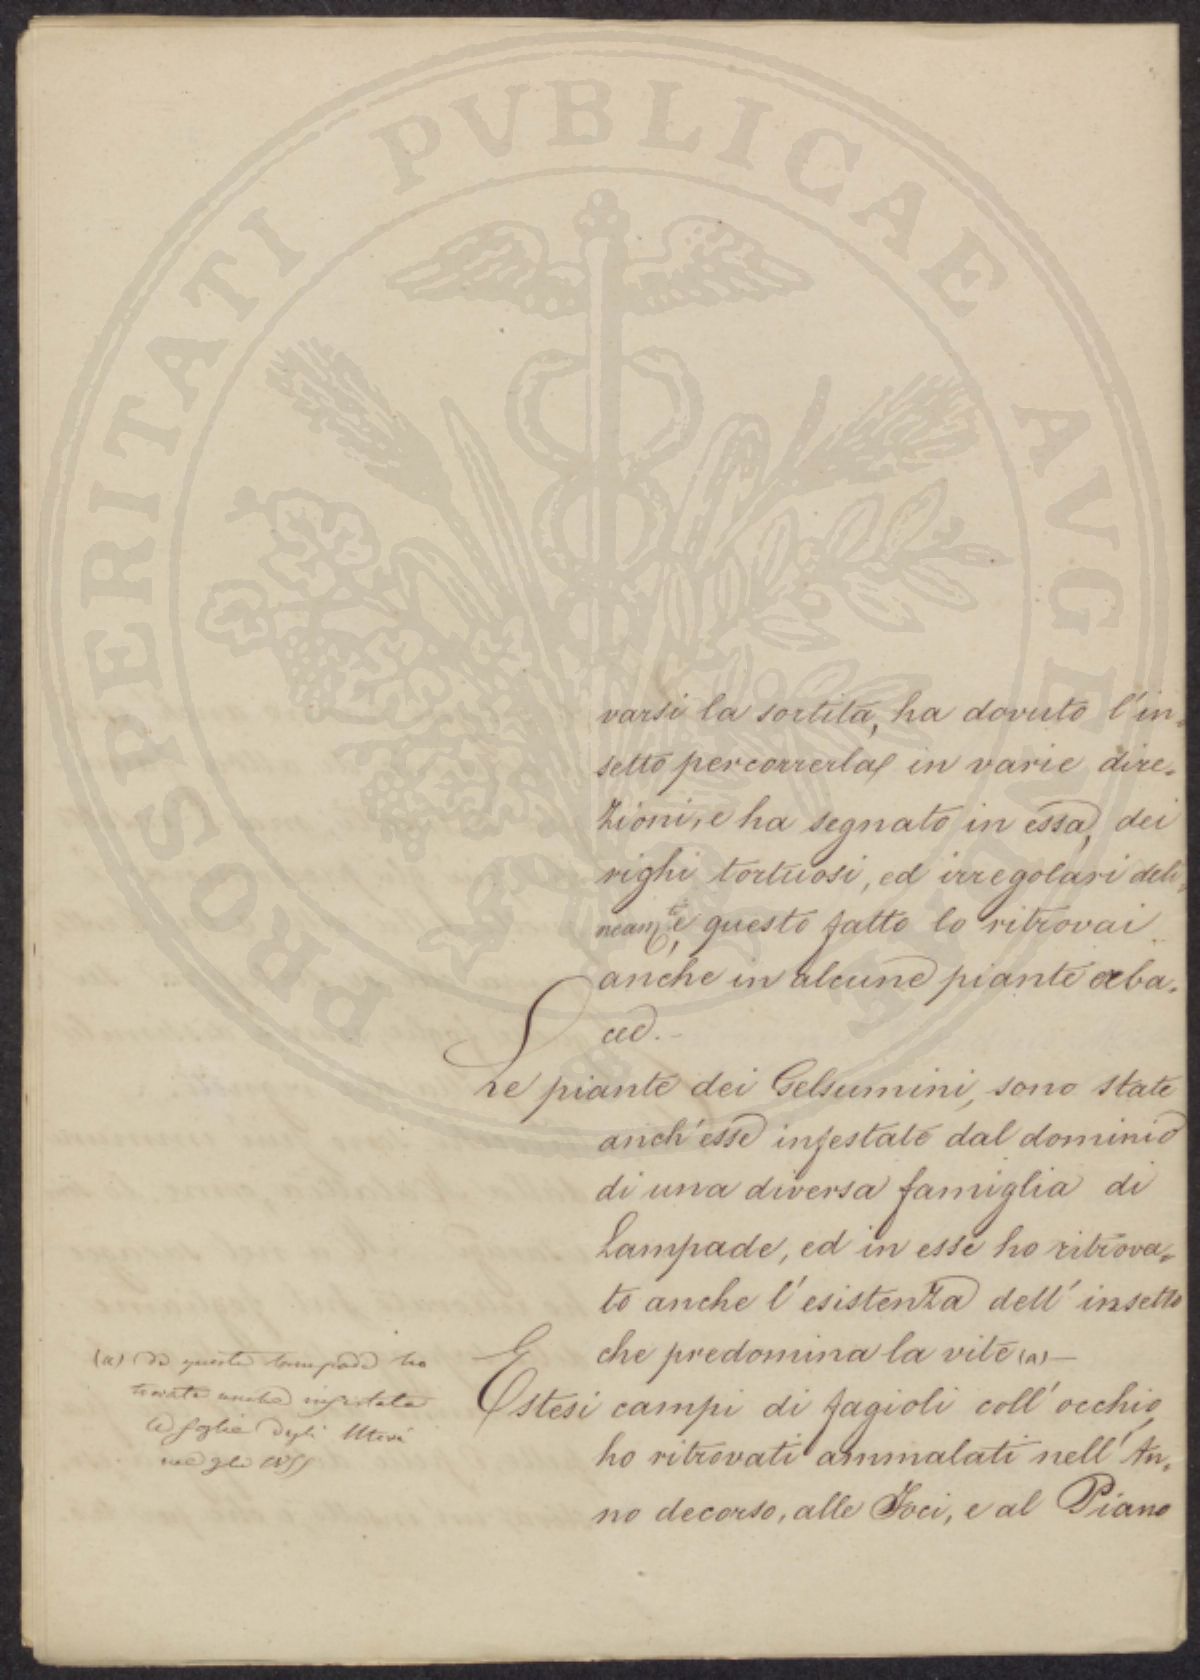 PROSPERITATI PUBLICAE AVGENDAE
varsi la sortita, ha dovuto l'in-
setto percorrerla in varie dire-
zioni, e ha segnato in essa, dei
righi tortuosi, ed irregolari deli-
neam.te, questo fatto lo ritrovai
anche in alcune piante erba-
cee.-
Le piante dei Gelsumini, sono state
anch'esse infestate dal dominio
di una diversa famiglia di
Lampade, ed in esse ho ritrova-
to anche l'esistenza dell'insetto
che predomina la vite (a)-
Estesi campi di fagioli coll'occhio,
ho ritrovati ammalati nell'An-
no decorso, alle Foci, e al Piano
(a) da queste lampade ho
trovate anche infestate
le foglie degli